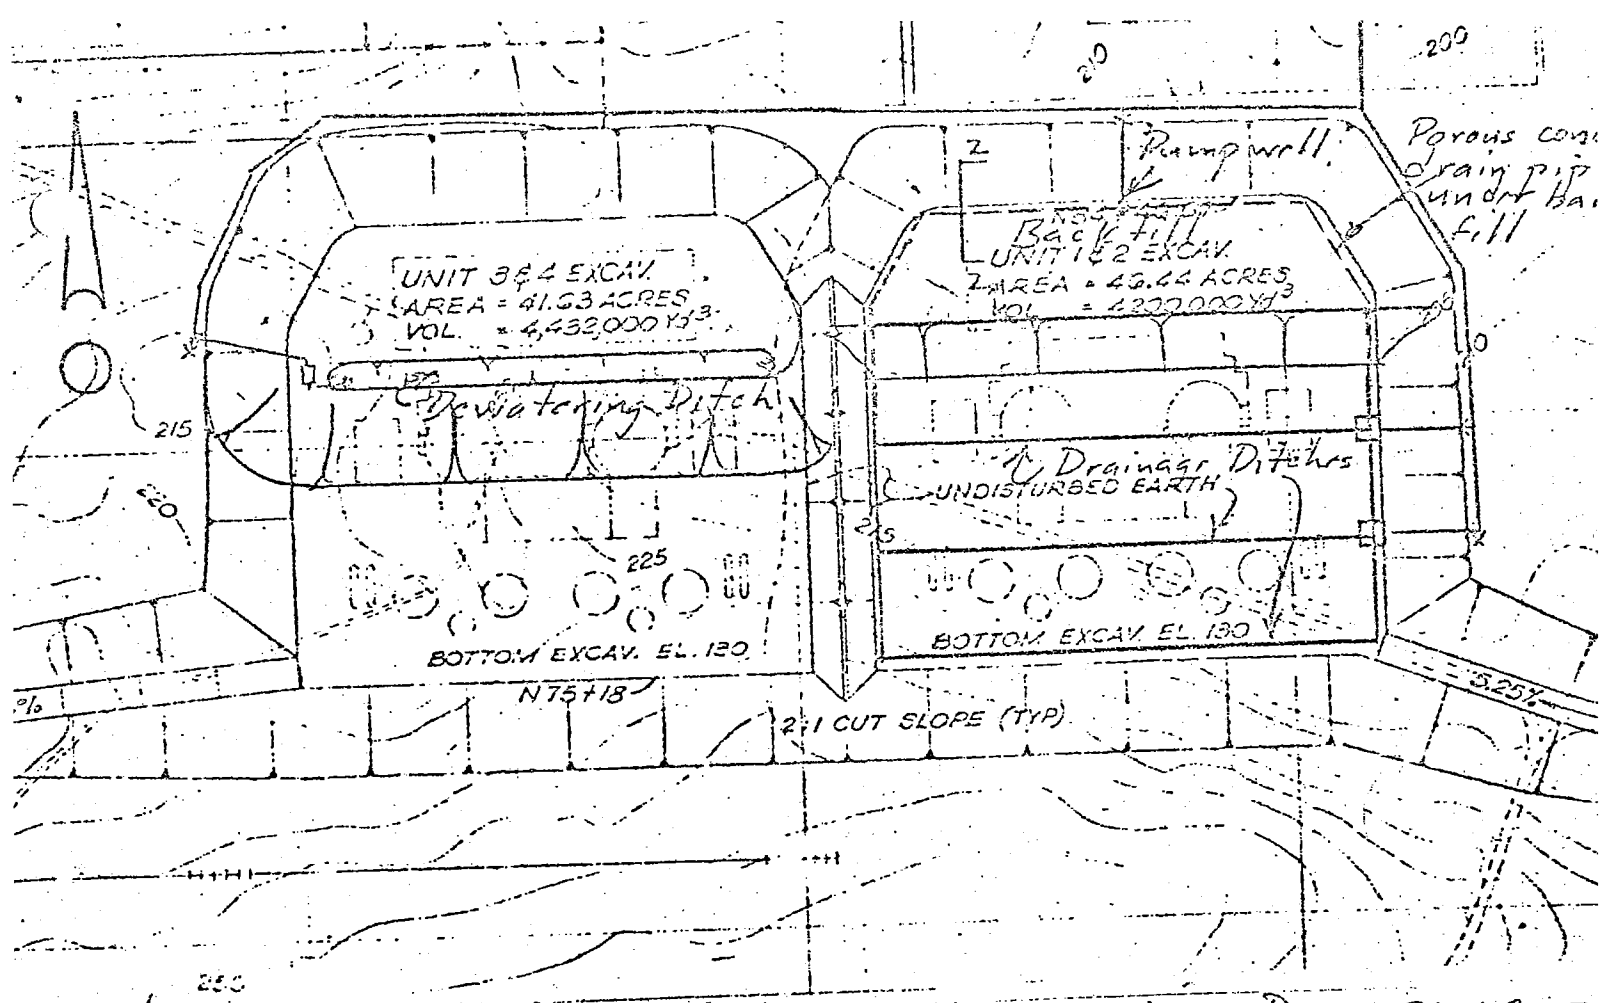 210
200
Pumpwell
Porous conc
Drain pip
under ba
fill
Z
Backfill
UNIT 1 & 2 EXCAV.
Z
AREA = 46.44 ACRES
VOL. = 4200000 Yd3
UNIT 3 & 4 EXCAV.
AREA = 41.63 ACRES
VOL. = 4,432,000 Yd3
Dewatering Ditch
215
220
225
Drainage Ditches
UNDISTURBED EARTH
215
BOTTOM EXCAV. EL. 130
BOTTOM EXCAV. EL. 130
N 75+18
2:1 CUT SLOPE (TYP)
%
- 5.25%